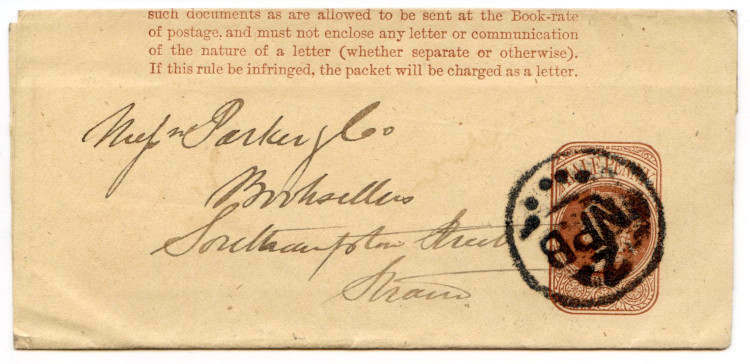 such documents as are allowed to be sent at the Book-rate
of postage, and must not enclose any letter or communication
of the nature of a letter (whether separate or otherwise).
If this rule be infringed, the packet will be charged as a letter.
Messrs Parker & Co
Booksellers
Southampton Street
Strand
HALFPENNY
NPB